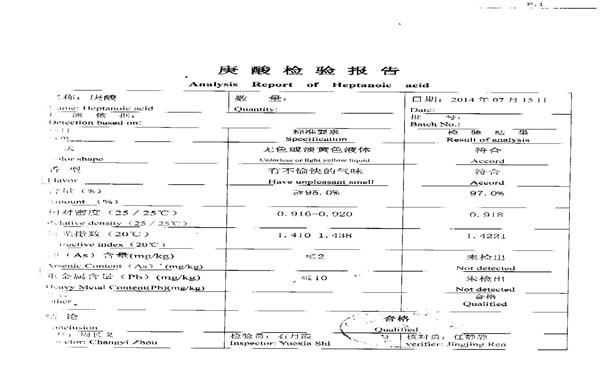 P.1
庚酸检验报告
Analysis Report of Heptanoic acid
名称：庚酸 数量： 日期：2014年07月15日
Name: Heptanoic acid Quantity: Date:
测依据： 批号：
Detection based on: Batch No.:
标准要求 检验结果
Specification Result of analysis
无色或淡黄色液体 符合
Color shape Colorless or light yellow liquid Accord
香型 有不愉快的气味 符合
Flavor Have unpleasant smell Accord
含量（%） ≥95.0% 97.0%
Amount (%)
相对密度（25/25℃） 0.916-0.920 0.918
Relative density (25/25℃)
指数（20℃） 1.410 1.438 1.4221
Refractive index (20℃)
（As）含量(mg/kg) ≤2 未检出
Arsenic Content (As) (mg/kg) Not detected
重金属含量（Pb）(mg/kg) ≤10 未检出
Heavy Metal Content(Pb)(mg/kg) Not detected
合格
Other Qualified
结论 合格
Conclusion Qualified
周长义 检验员：石月霞 核对员：任静静
Director: Changyi Zhou Inspector: Yuexia Shi verifier: Jingjing Ren